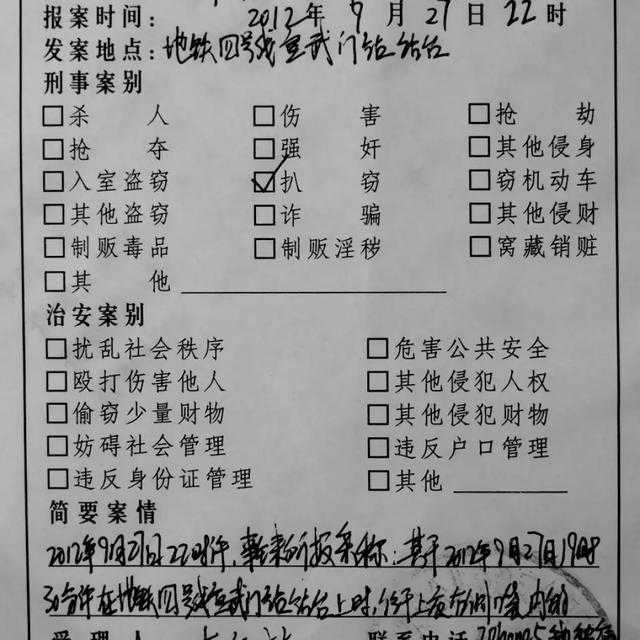 报案时间: 2012年 9 月 27日 22 时
发案地点: 地铁四号线宣武门站站台
刑事案别
□杀 人 □伤 害 □抢 劫
□抢 夺 □强 奸 □其他侵身
□入室盗窃 ☑扒 窃 □窃机动车
□其他盗窃 □诈 骗 □其他侵财
□制贩毒品 □制贩淫秽 □窝藏销赃
□其 他
治安案别
□扰乱社会秩序 □危害公共安全
□殴打伤害他人 □其他侵犯人权
□偷窃少量财物 □其他侵犯财物
□妨碍社会管理 □违反户口管理
□违反身份证管理 □其他
简要案情
2012年9月27日22时许, 来所报案称: 其于2012年9月27日19时
30分许在地铁四号线宣武门站站台上时,
受 理 人 联系电话